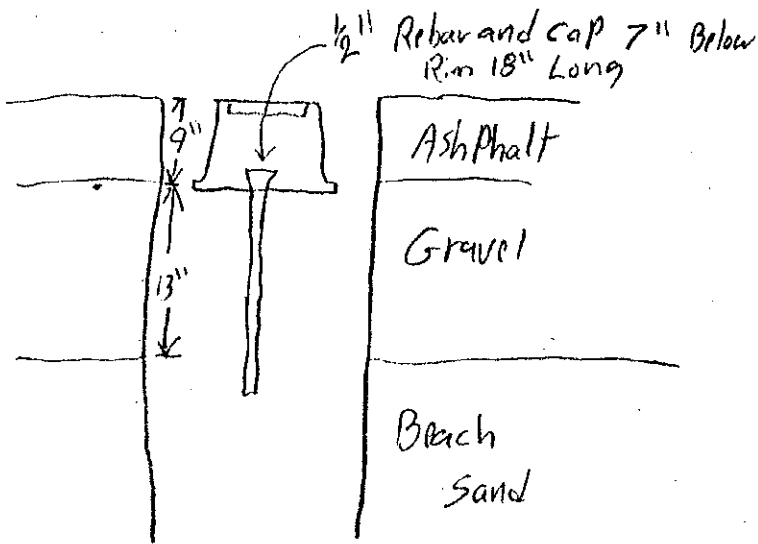 1/2" Rebar and Cap 7" Below
Rim 18" Long
9"
Ashphalt
Gravel
13"
Beach
Sand